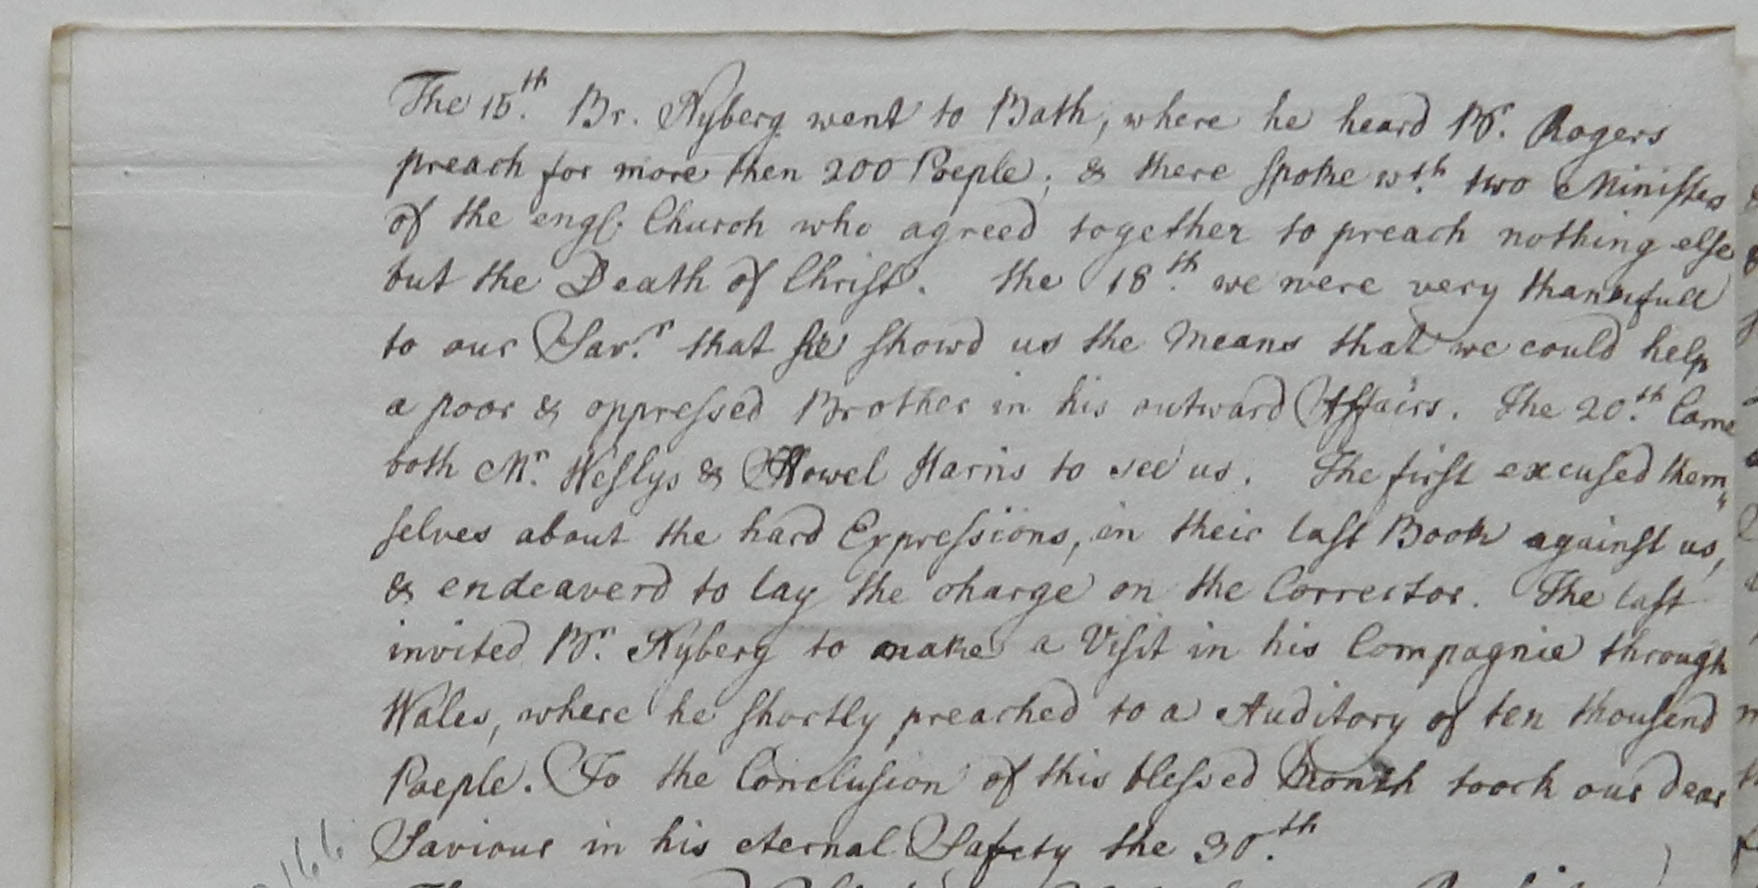 The 15.th Br. Nyberg went to Bath, where he heard Br. Rogers
preach for more then 200 Poeple; & there spoke wth. two Ministers
of the engl. Church who agreed together to preach nothing else
but the Death of Christ. the 18.th we were very thankfull
to our Sav.r that he showd us the Means that we could help
a poor & oppressed Brother in his outward Affairs. The 20.th Came
both Mr. Weslys & Howel Harris to see us. The first excused them„
selves about the hard Expressions, in their last Book against us,
& endeaverd to lay the charge on the Corrector. The last
invited Br. Nyberg to make a Visit in his Compagnie through
Wales, where he shortly preached to a Auditory of ten thousend
Poeple. To the Conclusion of this blessed Month toock our dear
Saviour in his eternal Safety the 30.th